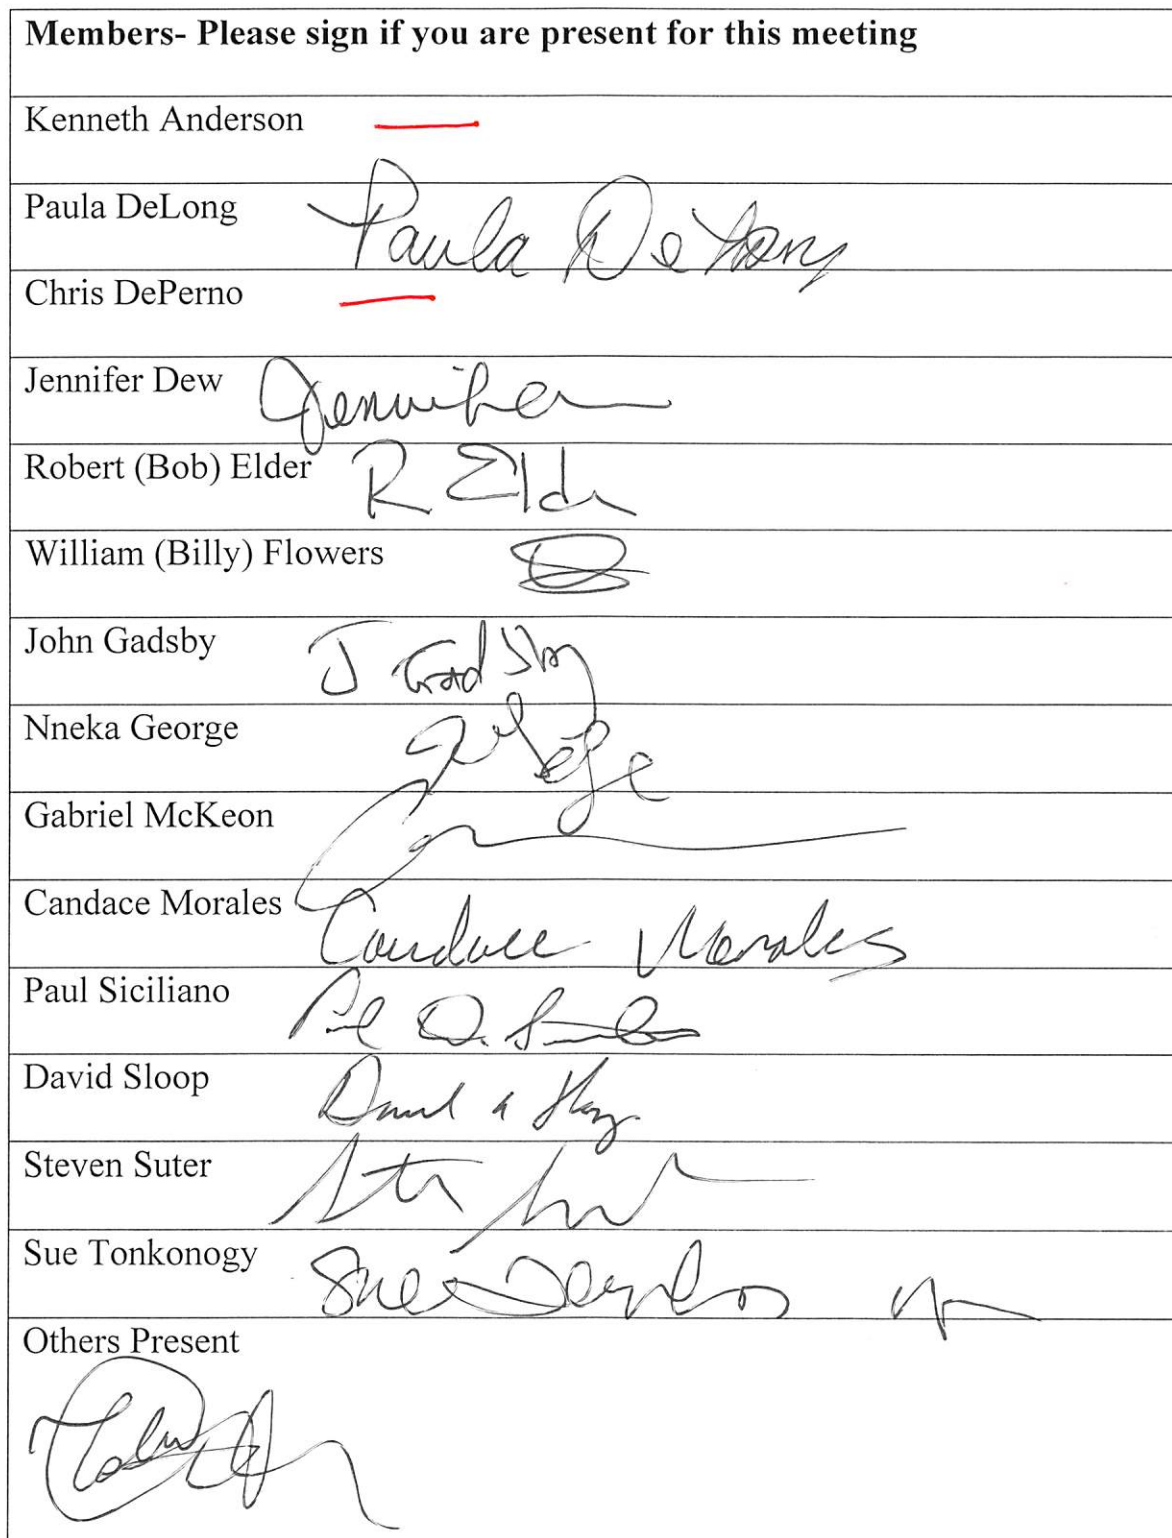 Members- Please sign if you are present for this meeting
Kenneth Anderson
Paula DeLong Paula DeLong
Chris DePerno
Jennifer Dew Jennifer
Robert (Bob) Elder R Elder
William (Billy) Flowers
John Gadsby J Gadsby
Nneka George
Gabriel McKeon
Candace Morales Candace Morales
Paul Siciliano
David Sloop
Steven Suter
Sue Tonkonogy Sue
Others Present